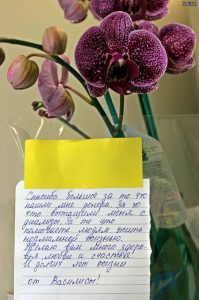 Спасибо большое за то что
нашли мне донора. За то
что вытащили меня с
диализа. За то что
помогаете людям жить
нормальной жизнью.
Желаю вам много здоро-
вья любви и счастья!
И долгих лет жизни.
от Василисы!